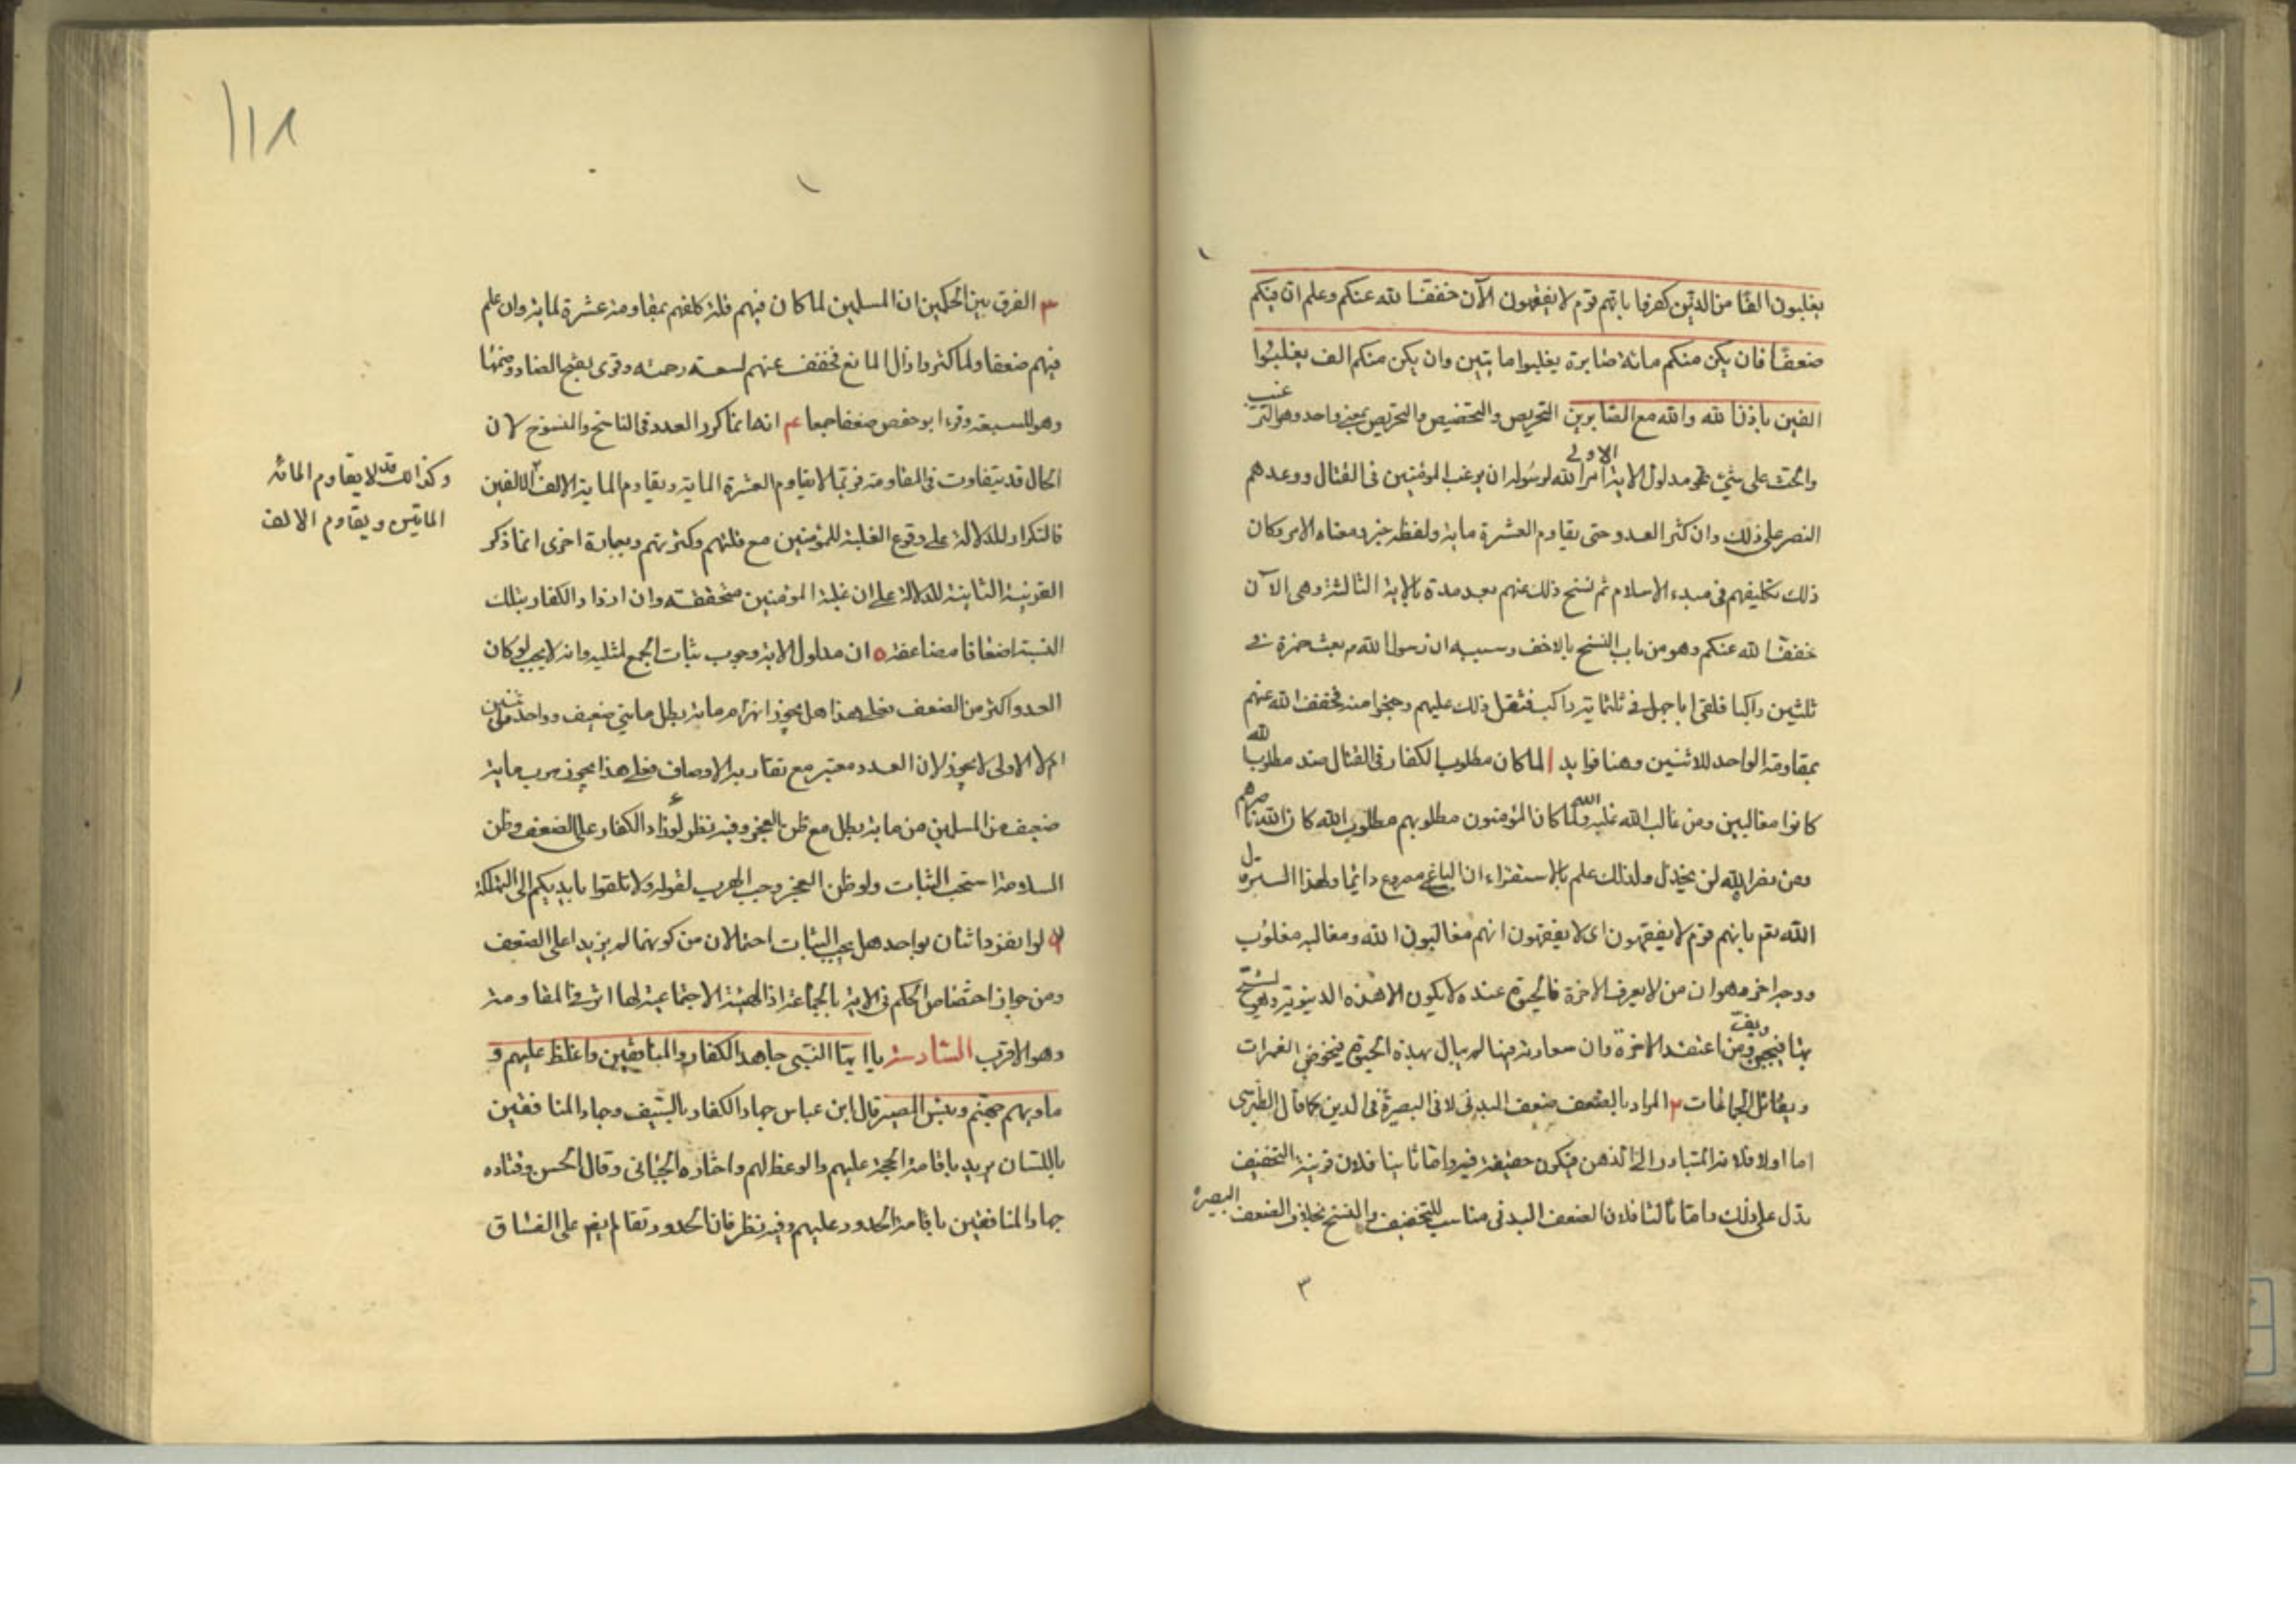 يغلبون الفا من الذين كفروا بانهم قوم لا يفقهون الآن خفف الله عنكم وعلم ان فيكم
ضعفا فان يكن منكم مائة صابرة يغلبوا مايتين وان يكن منكم الف يغلبوا
الفين باذن الله والله مع الصابرين التحريص والتحضيض والتحريض بمعنى واحد وهو الترغيب
والحث على شيء فمدلول الاية الاولى امر الله لرسوله ان يرغب المؤمنين في القتال ووعدهم
النصر على ذلك وان كثر العدو حتى يقاوم العشرة ماية ولفظه خبر ومعناه الامر وكان
ذلك تكليفهم في مبدء الاسلام ثم نسخ ذلك عنهم بعد مدة بالاية الثالثة وهي الآن
خفف الله عنكم وهو من باب النسخ بالاخف وسببه ان رسول الله م بعث حمزة في
ثلثين راكبا فلقي ابا جهل في ثلثماية راكب فثقل ذلك عليهم وضجوا منه فخفف الله عنهم
بمقاومة الواحد للاثنين وهنا فوايد ا لما كان مطلوب الكفار في القتال ضد مطلوب الله
كانوا مغالبين ومن غالب الله غلبه الله ولما كان المؤمنون مطلوبهم مطلوب الله كان الله ناصرهم
ومن نصر الله لن يخذل ولذلك علم بالاستقراء ان الباغي مصروع دائما ولهذا السر قال
الله تعم بانهم قوم لا يفقهون اى لا يفقهون انهم مغالبون الله ومغالبه مغلوب
ووجه اخر وهو ان من لا يعرف الاخرة فالحيوة عنده لا يكون الا هذه الدنيوية وهو يشح
بها فيجبن ويقف ومن اعتقد الاخرة وان سعادته فيها لم يبال بهذه الحيوة فيخوض الغمرات
ويقاتل الجماعات ٢ المراد بالضعف ضعف البدن لا في البصيرة في الدين كما قال الطبرسي
اما اولا فلانه المتبادر الى الذهن فيكون حقيقة فيه واما ثانيا فلان قرينة التخفيف
يدل على ذلك واما ثالثا فلان الضعف البدني مناسب للتخفيف والنسخ بخلاف الضعف البصيرة
٣
١١٨
٣ الفرق بين الحكمين ان المسلمين لما كان فيهم قلة كلفهم بمقاومة عشرة لماية وان علم
فيهم ضعفا ولما كثروا زال المانع فخفف عنهم لسعة رحمته وقرى بفتح الضاد وضمها
وهو للسبعة وقرء ابو حفص ضعفا جمعا ۴ انها انما كرر العدد في الناسخ والمنسوخ لان
الحال قد يتفاوت في المقاومة فربما لا يقاوم العشرة الماية ويقاوم الماية الالف الالفين
وكذالك قد لا يقاوم المائه
الماتين ويقاوم الالف
فالتكرار للدلالة على وقوع الغلبة للمؤمنين مع قلتهم وكثرتهم وبعبارة اخرى انما ذكر
القرينة الثانية للدلالة على ان غلبة المؤمنين متحققة وان ازداد الكفار بتلك
النسبة اضعافا مضاعفة ٥ ان مدلول الاية وجوب ثبات الجمع لمثليه وانه لا يجب لو كان
العدو اكثر من الضعف فعلى هذا هل يجوز انهزام ماية بطل مايتي ضعيف وواحد من اثنين
ام لا الاولى لا يجوز لان العدد معتبر مع تقارب الاوصاف فعلى هذا يجوز هرب ماية
ضعيف من المسلمين من ماية بطل مع ظن العجز وفيه نظر لو زاد الكفار على الضعف وظن
السلامة استحب الثبات ولو ظن العجز وجب الهرب لقوله ولا تلقوا بايديكم الى التهلكة
لو انفرد اثنان بواحد هل يجب الثبات احتمالان من كونهما لم يزيدا على الضعف
ومن جواز اختصاص الحكم في الاية بالجماعة اذ الهيئة الاجتماعية لها اثر في المقاومة
وهو الاقرب السادسة يا ايها النبي جاهد الكفار والمنافقين واغلظ عليهم و
ماويهم جهنم وبئس المصير قال ابن عباس جهاد الكفار بالسيف وجهاد المنافقين
باللسان يريد باقامة الحجة عليهم والوعظ لهم واختاره الجبائى وقال الحسن وقتاده
جهاد المنافقين باقامة الحدود عليهم وفيه نظر فان الحدود تقام ايضا على الفساق